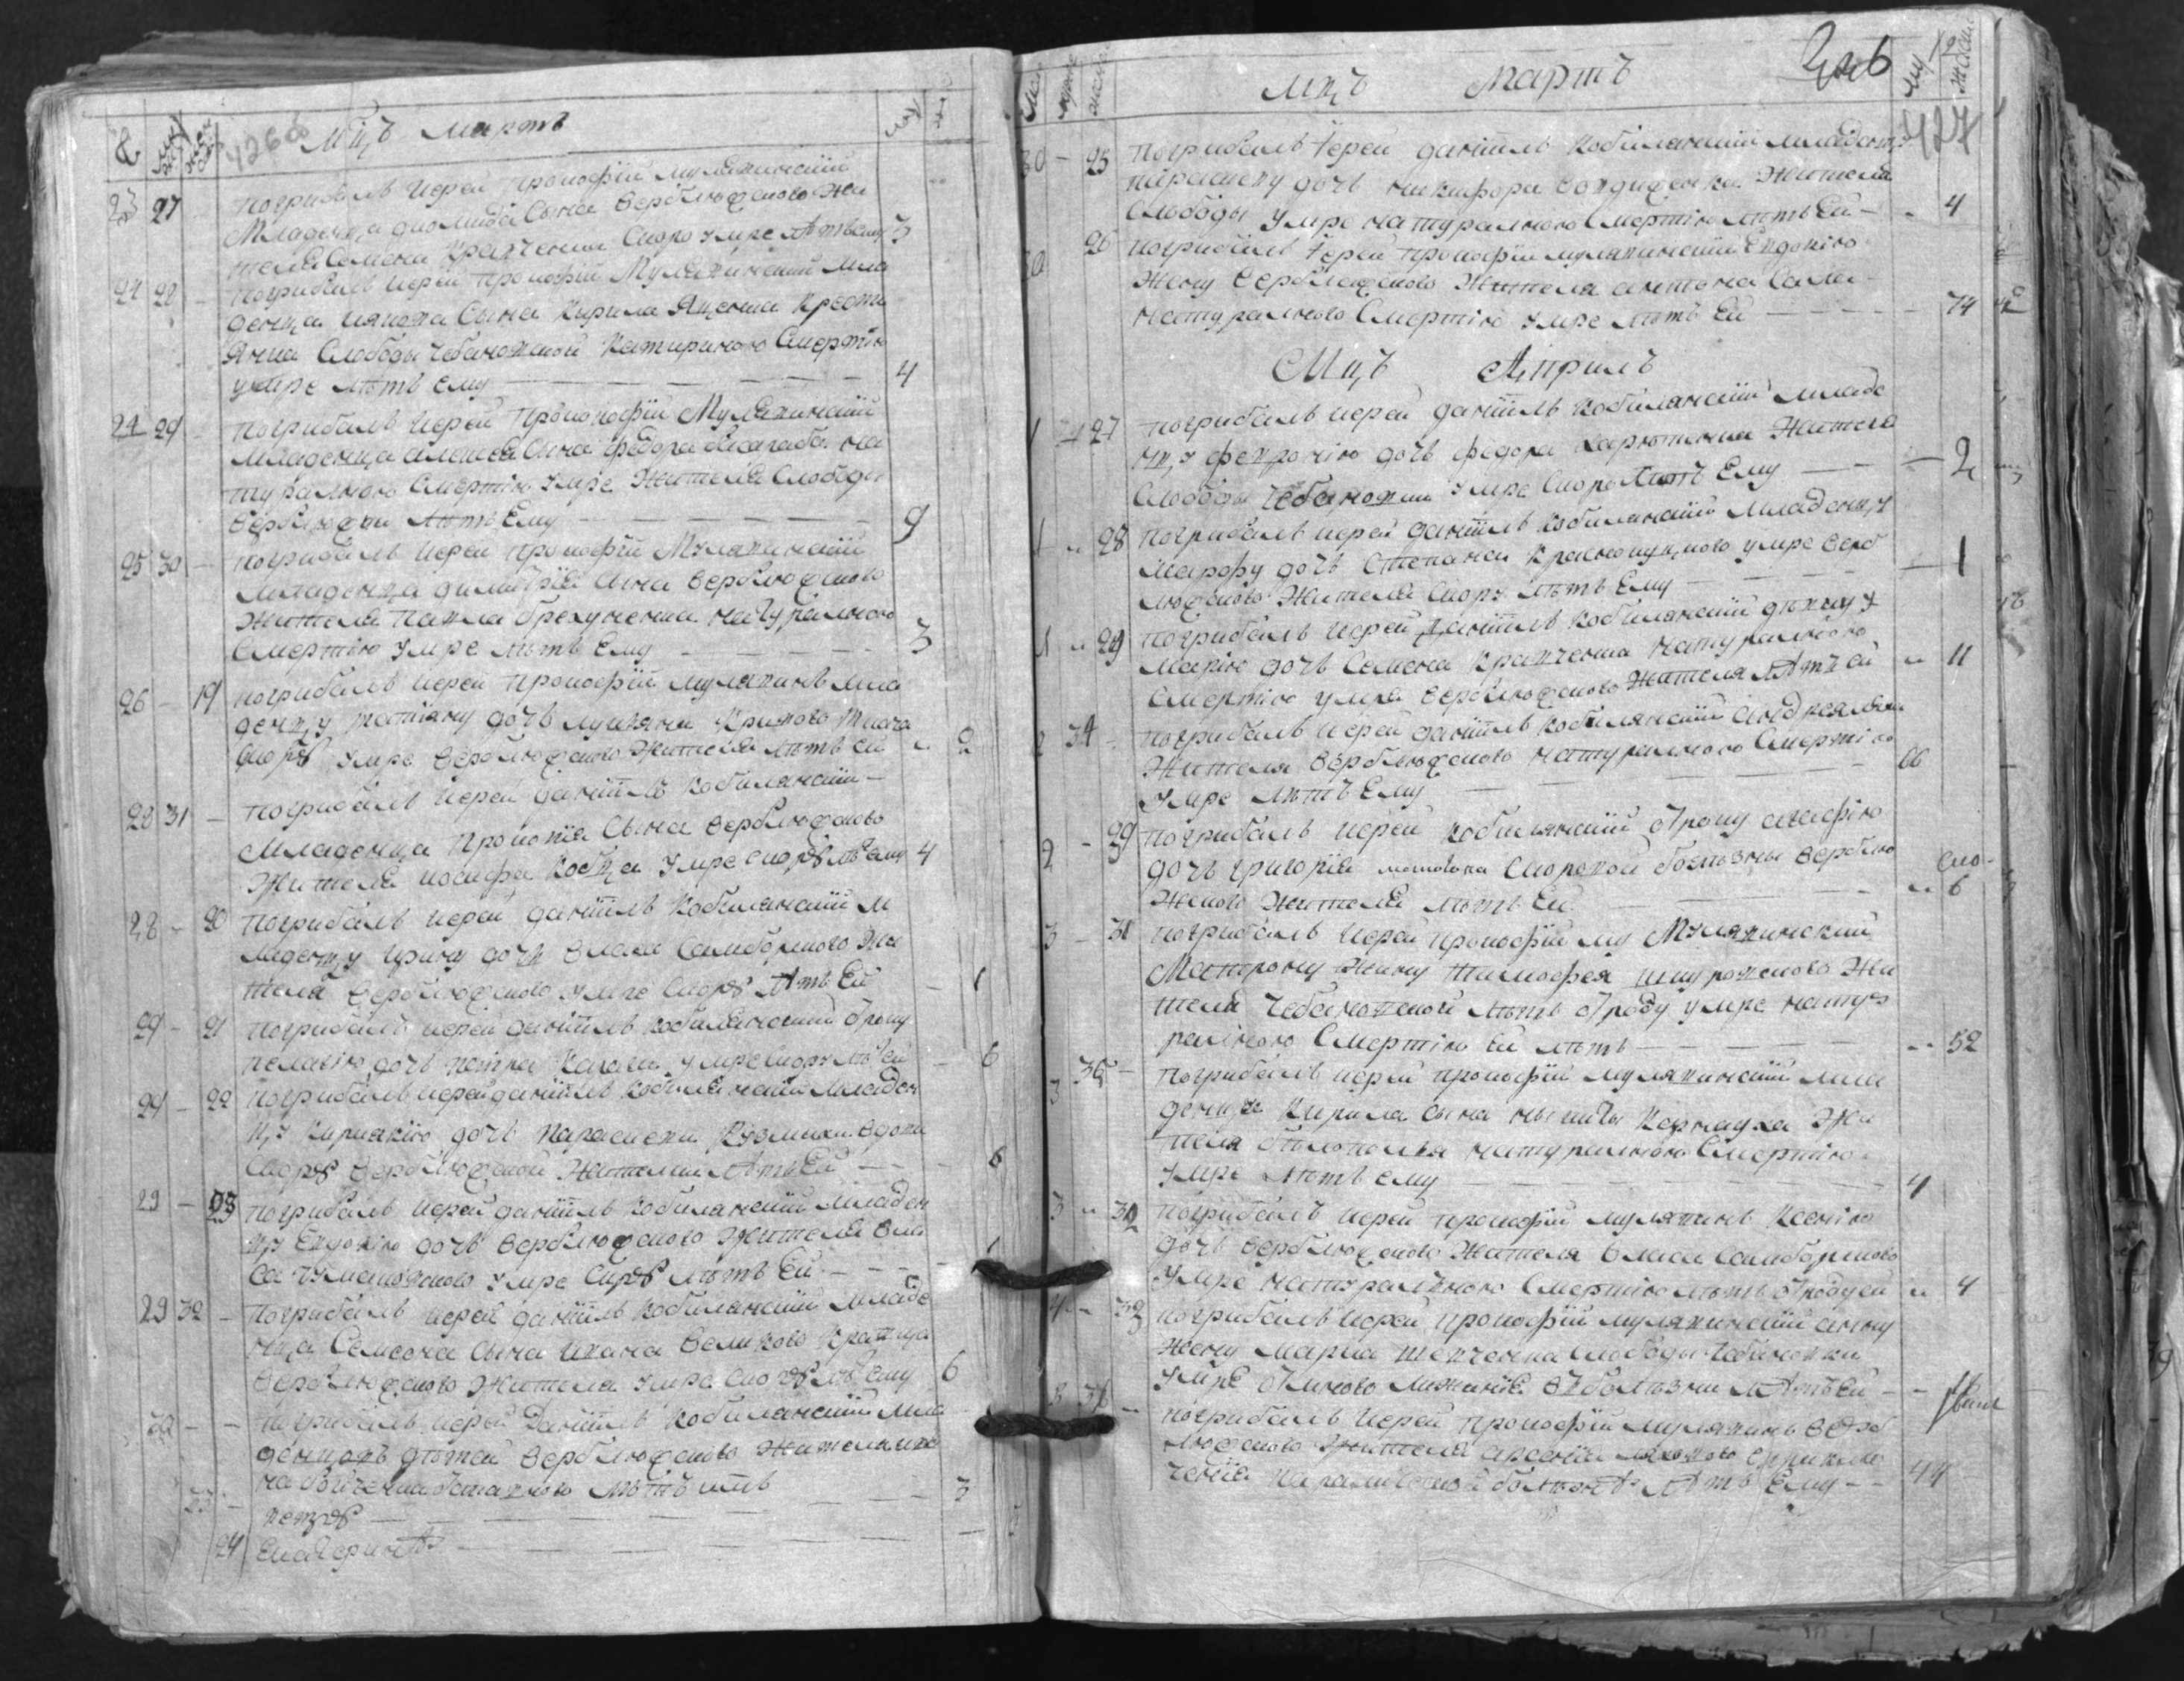 мцъ мартъ
426об
23 27 погрибалъ иерей прокофій мулявинскій
младенца диомида сына верблюжского жи
теля семена кравченка скоро умре лѣтъ ему 3
24 28 погрибалъ иерей прокофій мулявинскій мла
денца иякова сына кирила яценка крестя
янина слободы чебановской натуралною смертію
умре лѣтъ ему 4
24 29 погрибалъ иерей прокопофій мулявинскій
младенца алексѣя сына федора на
туралною смертію умре жителя слободы
верблюжки лѣтъ ему 9
25 30 погрибалъ иерей прокофій мулявинскій
младенца димитрія сына верблюжского
жителя павла брехуненка натуралною
смертію умре лѣтъ ему 3
26 19 погрибалъ иерей прокофій мулявинъ мла
денцу татіану дочь лукяна кривого ткача
скоро умре верблюжского жителя лѣтъ ей 2
28 31 погрибалъ иерей даніилъ кобилянскій
младенца прокопія сына верблюжского
жителя иосифа кобца умре скоро лѣтъ ему 4
28 20 погрибалъ иерей даніилъ кобилянскій м
ладенцу ирину дочь власа самборского жи
теля верблюжского умре скоро лѣтъ ей 1
29 21 погрибалъ иерей даніилъ кобилянскій отроцу
пелагію дочь петра умре скоро лѣтъ ей 6
29 22 погрибалъ иерей даніилъ кобилянскій младен
цу кириакію дочь параскеви кузмихи вдови
скоро верблюжской жителки лѣтъ ей 6
29 23 погрибалъ иерей даніилъ кобилянскій младен
цу евдокію дочь верблюжского жителя вла
са умре скоро лѣтъ ей 1
29 32 погрибалъ иерей даніилъ кобилянскій младе
нца семеона сына ивана великого кравца
верблюжского жителя умре скоро лѣтъ ему 6
30 погрибалъ иерей даніилъ кобилянскій мла
денцовъ дѣтей верблюжского жителя ива
на лѣтъ имъ
33 петра 3
24 екатерину
мцъ мартъ
427
30 25 погрибалъ іерей даніилъ кобилянскій младенцу
параскеву дочь никифора бондиренка жителя
слободы умре натуралною смертію лѣтъ ей 4
30 26 погрибалъ іерей прокофій мулявинскій евдокію
жену верблюжского жителя антона сала
натуралною смертію умре лѣтъ ей 74
мцъ априлъ
1 27 погрибалъ иерей даніилъ кобилянскій младе
нцу февронію дочь федора жителя
слободы чебановки умре скоро лѣтъ ему 2
1 28 погрибалъ иерей даніилъ кобилянскій младенцу
марфу дочь степана краснокуцкого умре верб
люжского жителя скоро лѣтъ ему 1
1 29 погрибалъ иерей даніилъ кобилянскій дѣвицу
марію дочь семена кравченка натуралною
смертію умре верблюжского жителя лѣтъ ей 11
2 34 погрибалъ иерей даніилъ кобилянскій андрея
жителя верблюжского натуралною смертію
умре лѣтъ ему 66
2 29 погрибалъ иерей кобилянскій отроцу агафію
дочь григорія скоровой болѣзны верблю
жского жителя лѣтъ ей 6
3 31 погрибалъ иерей прокофій му мулявинский
матрону жину тимофея жи
теля чебановской лѣтъ отроду умре нату
ралною смертію ей лѣтъ 52
3 35 погрибалъ иерей прокофій мулявинскій мла
денца кирила сына никиты карнауха жи
теля натуралною смертію
умре лѣтъ ему 4
3 32 погрибалъ иерей прокофій мулявинъ ксенію
дочь верблюжского жителя власа самборского
умре натуралною смертію лѣтъ отроду ей 4
4 33 погрибалъ иерей прокофій мулявинскій анну
жену марка шевченка слободы чебановки
умре болѣзни лѣтъ ей
8 36 погрибалъ иерей прокофій мулявинъ верб
люжского жителя арсенія
болѣзнѣ лѣтъ ему 44